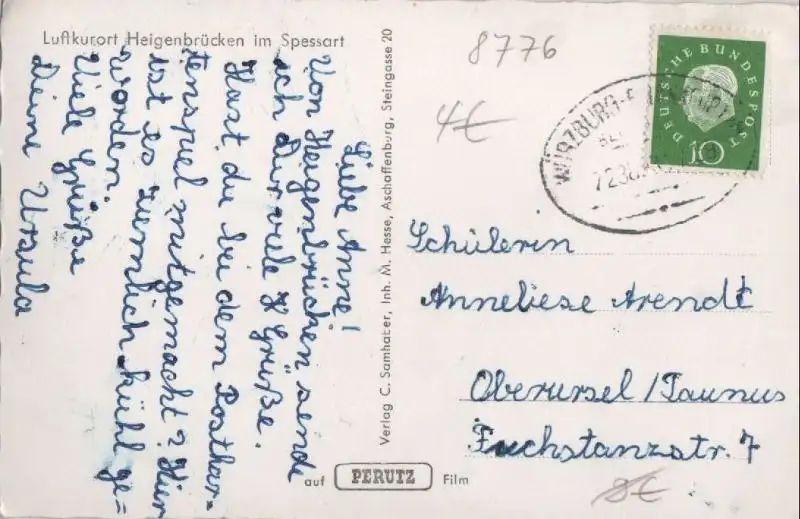 Luftkurort Heigenbrücken im Spessart
Liebe Anne!
Von Heigenbrücken sende
ich Dir viele Grüße.
Hast du bei dem Postkar-
tenspiel mitgemacht? Hier
ist es ziemlich kühl ge=
worden.
Viele Grüße
Deine Ursula
Verlag C. Samhaber, Inh. M. Hesse, Aschaffenburg, Steingasse 20
auf PERUTZ Film
8776
4€
DEUTSCHE BUNDESPOST
10
WÜRZBURG-
Schülerin
Anneliese Arendt
Oberursel/Taunus
Fuchstanzstr. 7
8€